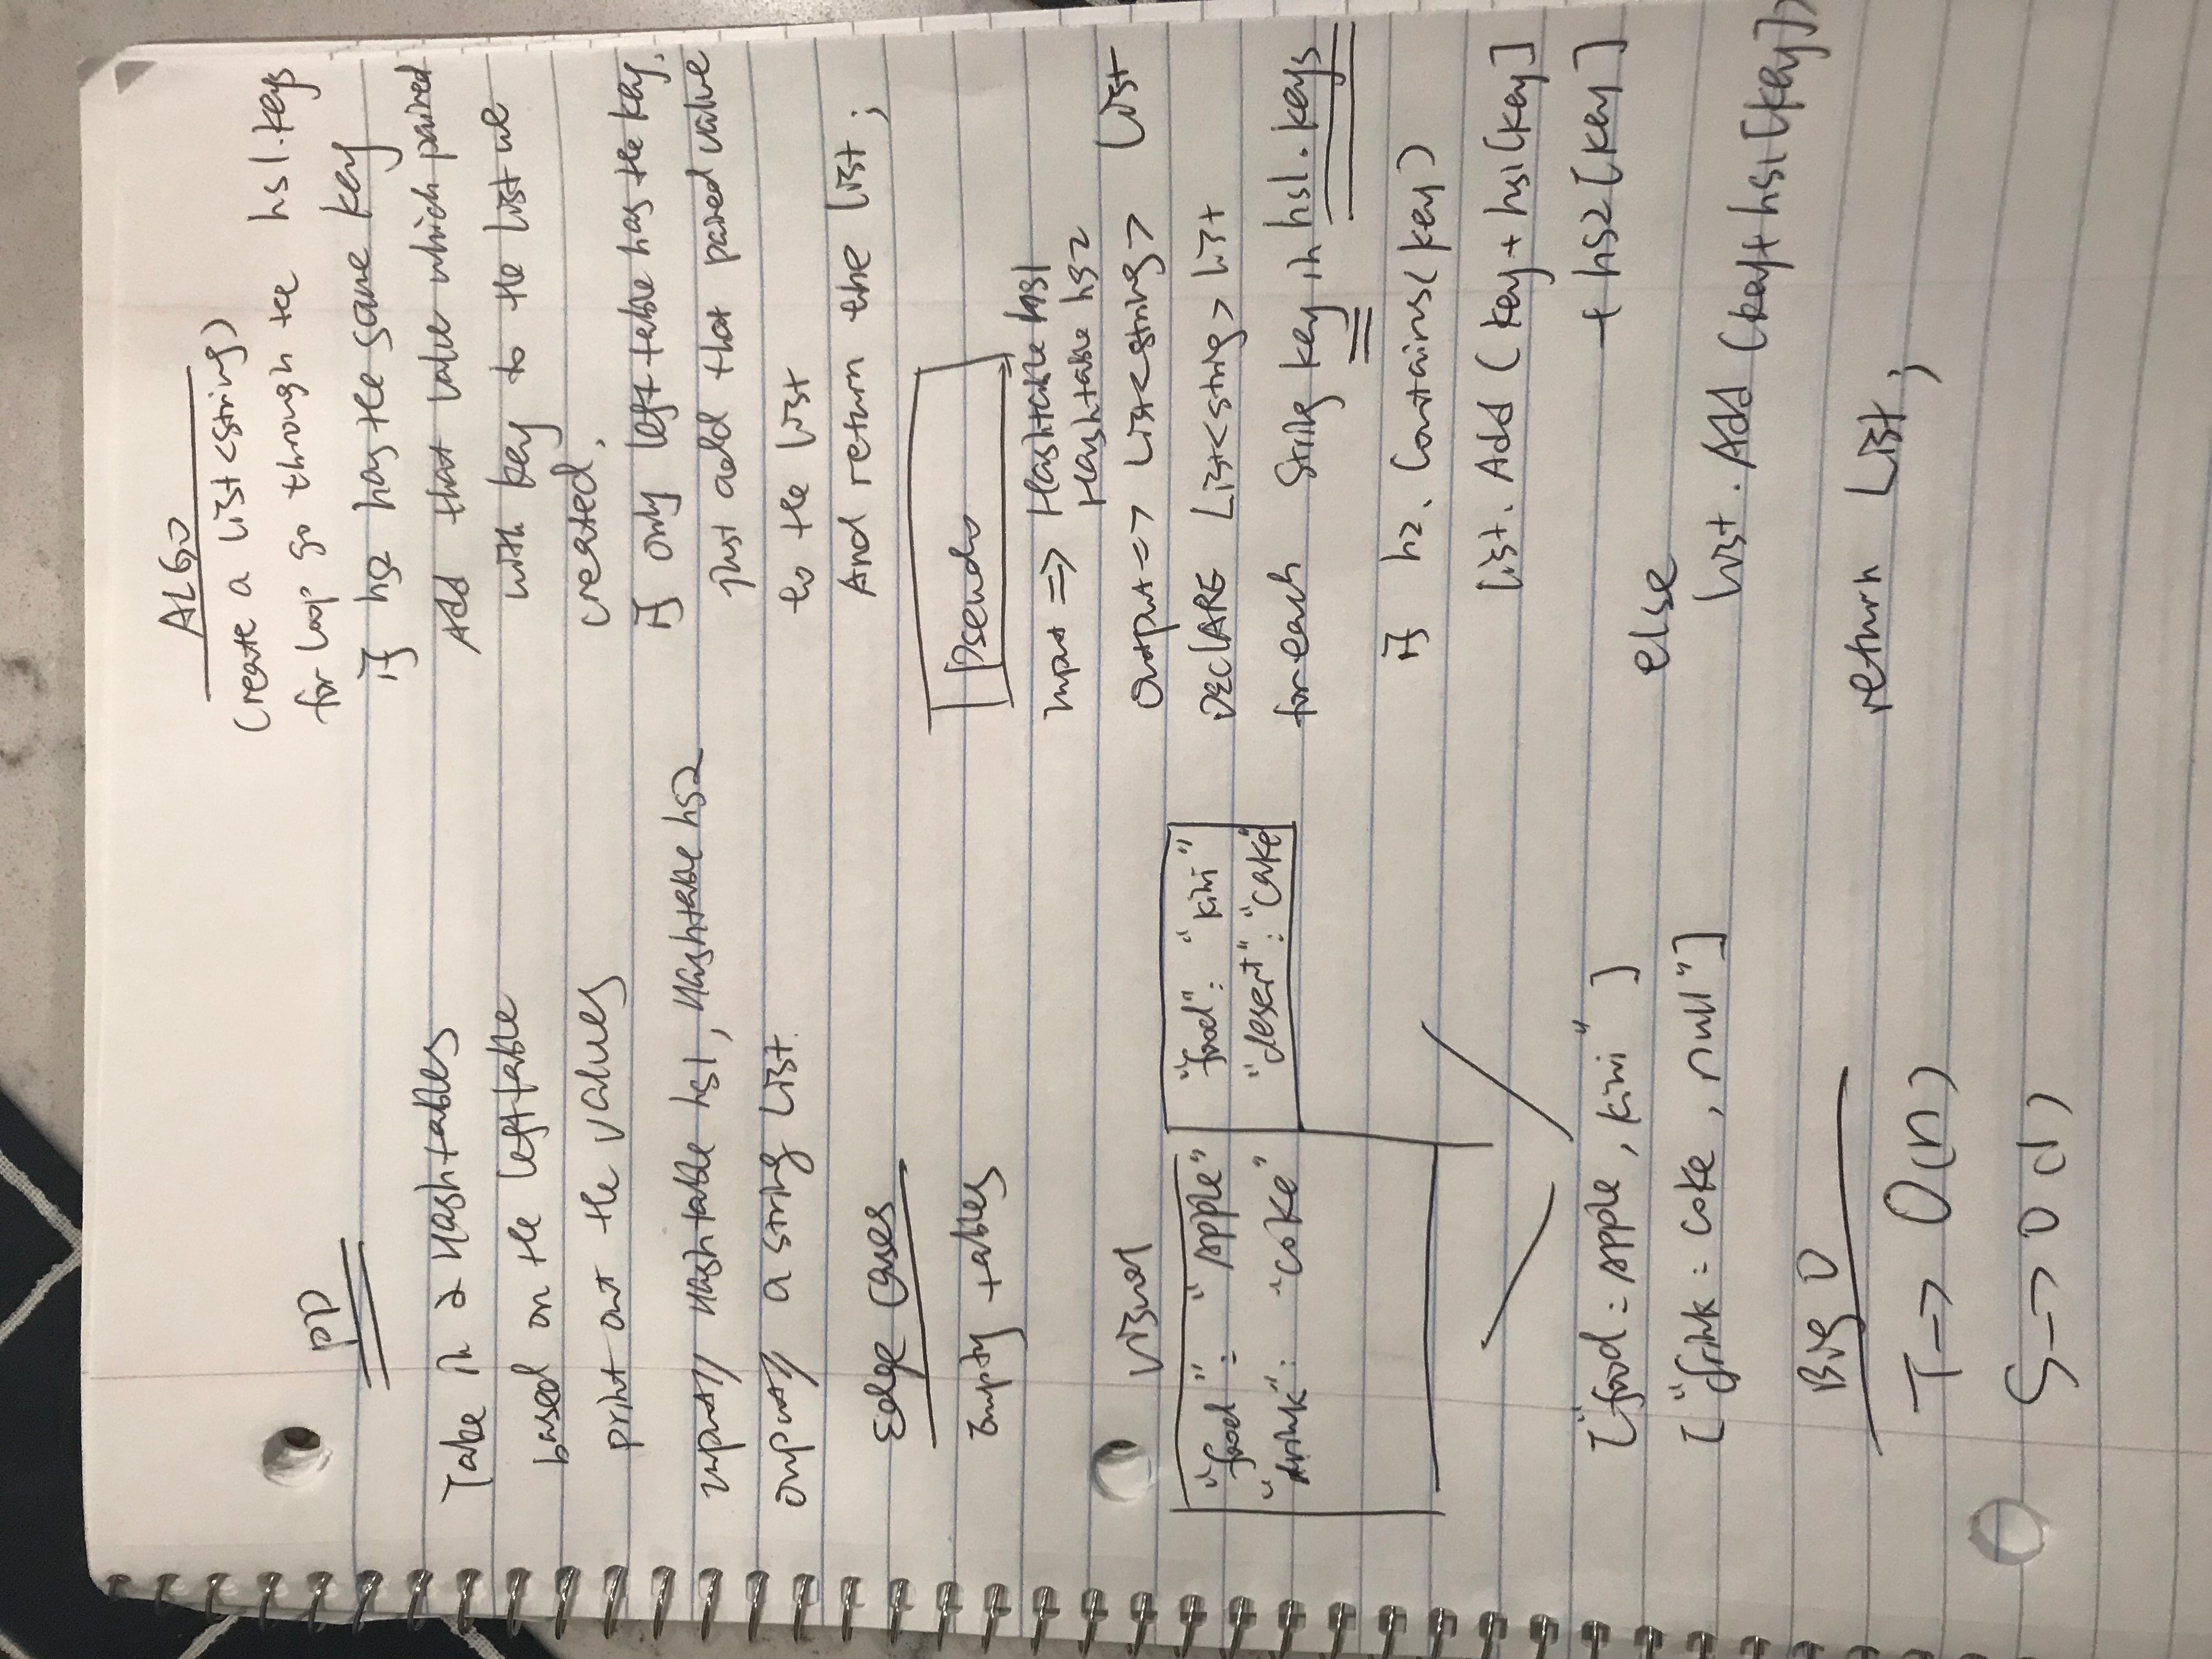 PD
Take in 2 Hashtables
based on the left table
print out the values
input// Hashtable hs1, Hashtable hs2
output// a string list.
Edge cases
Empty tables
Visual
"food": "Apple"
"drink": "coke"
"food": "kiwi"
"desert": "cake"
["food: apple, kiwi"]
["drink: coke, null"]
Big O
T -> O(n)
S -> O(1)
ALGO
Create a list<string>
for loop go through the hs1.keys
if hs2 has the same key
Add that value which paired
with key to the list we
created.
if only left table has the key,
just add that paired value
to the list
And return the list;
Pseudo
input => Hashtable hs1
Hashtable hs2
output => List<string> list
DECLARE List<string> list
for each string key in hs1.keys
if h2.Contains(key)
list.Add (key + hs1[key]
+ hs2[key]
else
list.Add (key + hs1[key])
return list;